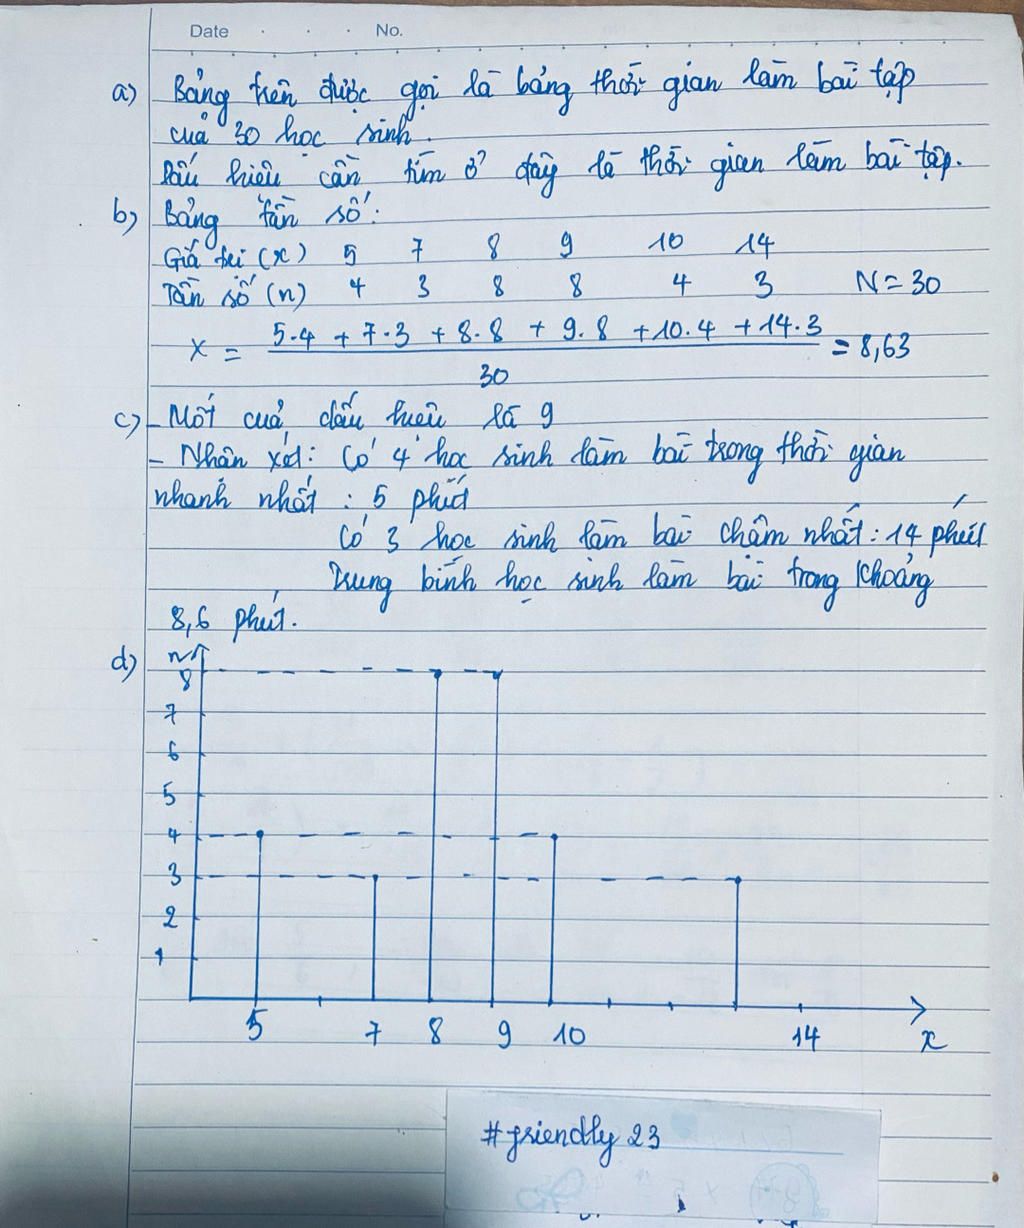 Date . . . No.
a) Bảng trên được gọi là bảng thời gian làm bài tập
của 30 học sinh.
Dấu hiệu cần tìm ở đây là thời gian làm bài tập.
b) Bảng tần số:
Giá trị (x) 5 7 8 9 10 14
Tần số (n) 4 3 8 8 4 3 N = 30
X = 5.4 + 7.3 + 8.8 + 9.8 + 10.4 + 14.3 / 30 = 8,63
c) - Mốt của dấu hiệu là 9
- Nhận xét: Có 4 học sinh làm bài trong thời gian
nhanh nhất : 5 phút
Có 3 học sinh làm bài chậm nhất : 14 phút
Trung bình học sinh làm bài trong khoảng
8,6 phút.
d) n
8
7
6
5
4
3
2
1
5 7 8 9 10 14 x
#friendly 23